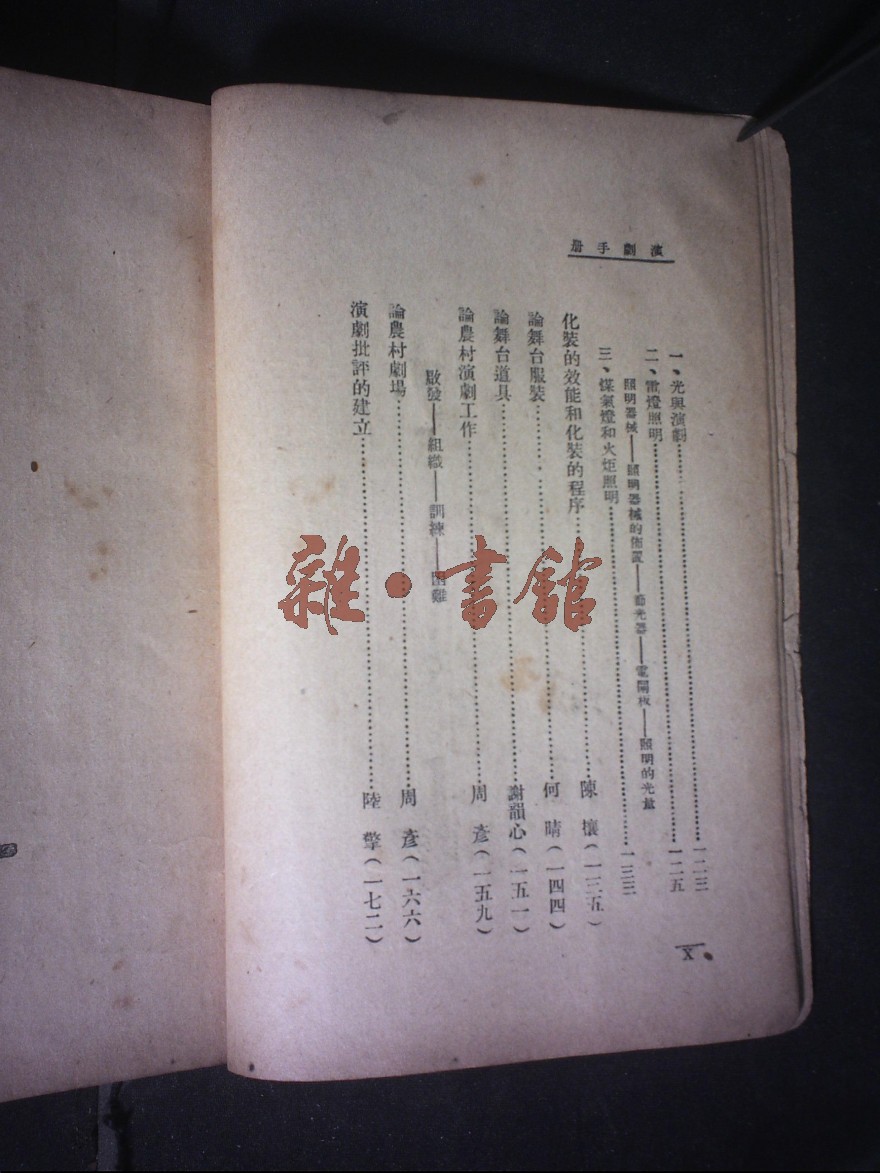 演劇手册
一、光與演劇……一二三
二、電燈照明……一二五
照明器械——照明器械的佈置——節光器——電閘板——照明的光量
三、煤氣燈和火炬照明……一三三
化裝的效能和化裝的程序……陳 檴（一三五）
論舞台服裝……何 晴（一四四）
論舞台道具……謝韻心（一五一）
論農村演劇工作……周 彥（一五九）
啟發——組織——訓練——困難
論農村劇場……周 彥（一六六）
演劇批評的建立……陸 擎（一七二）
X
雜·書館